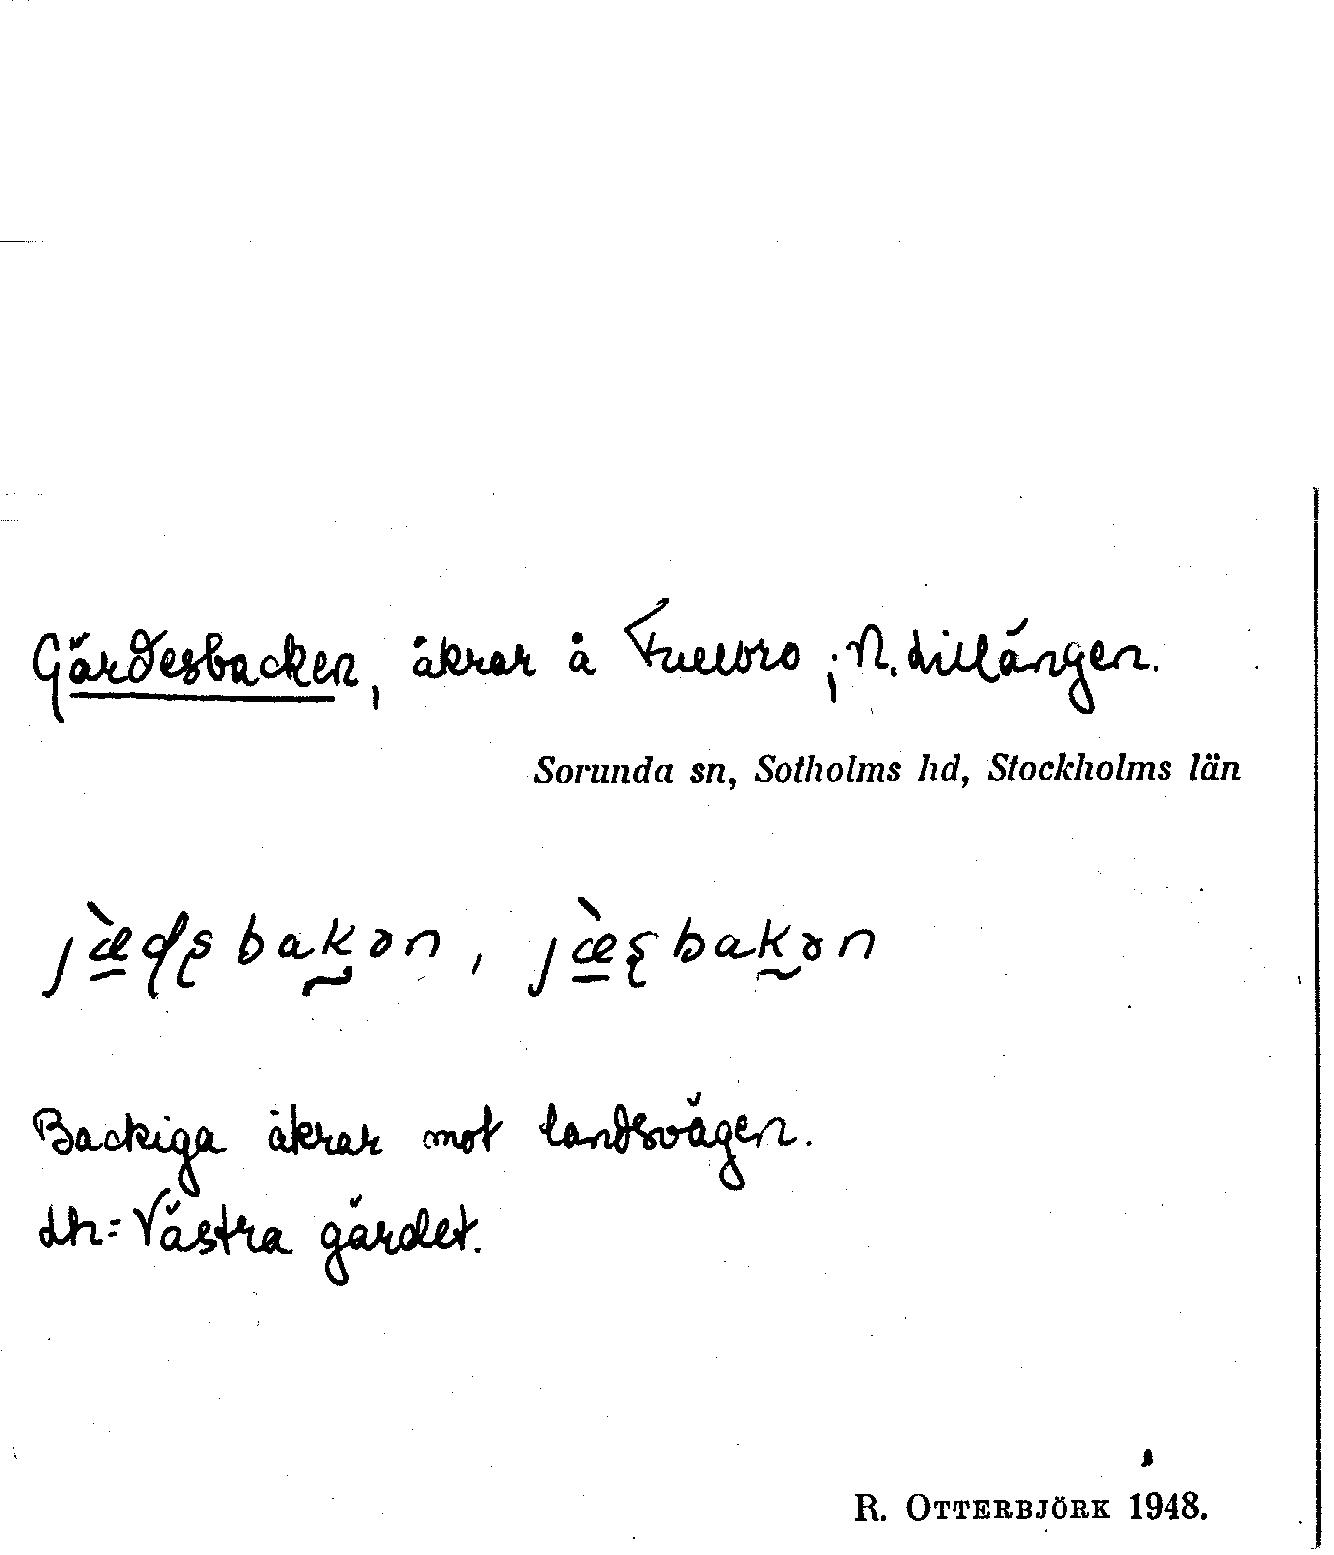 Gärdesbacken, åkrar å Fullbro; N. Lillängen.
Sorunda sn, Sotholms hd, Stockholms län
j̀æɖʂbakən, j̀æʂbakən
Backiga åkrar mot landsvägen.
Lh = Västra gärdet.
R. OTTERBJÖRK 1948.